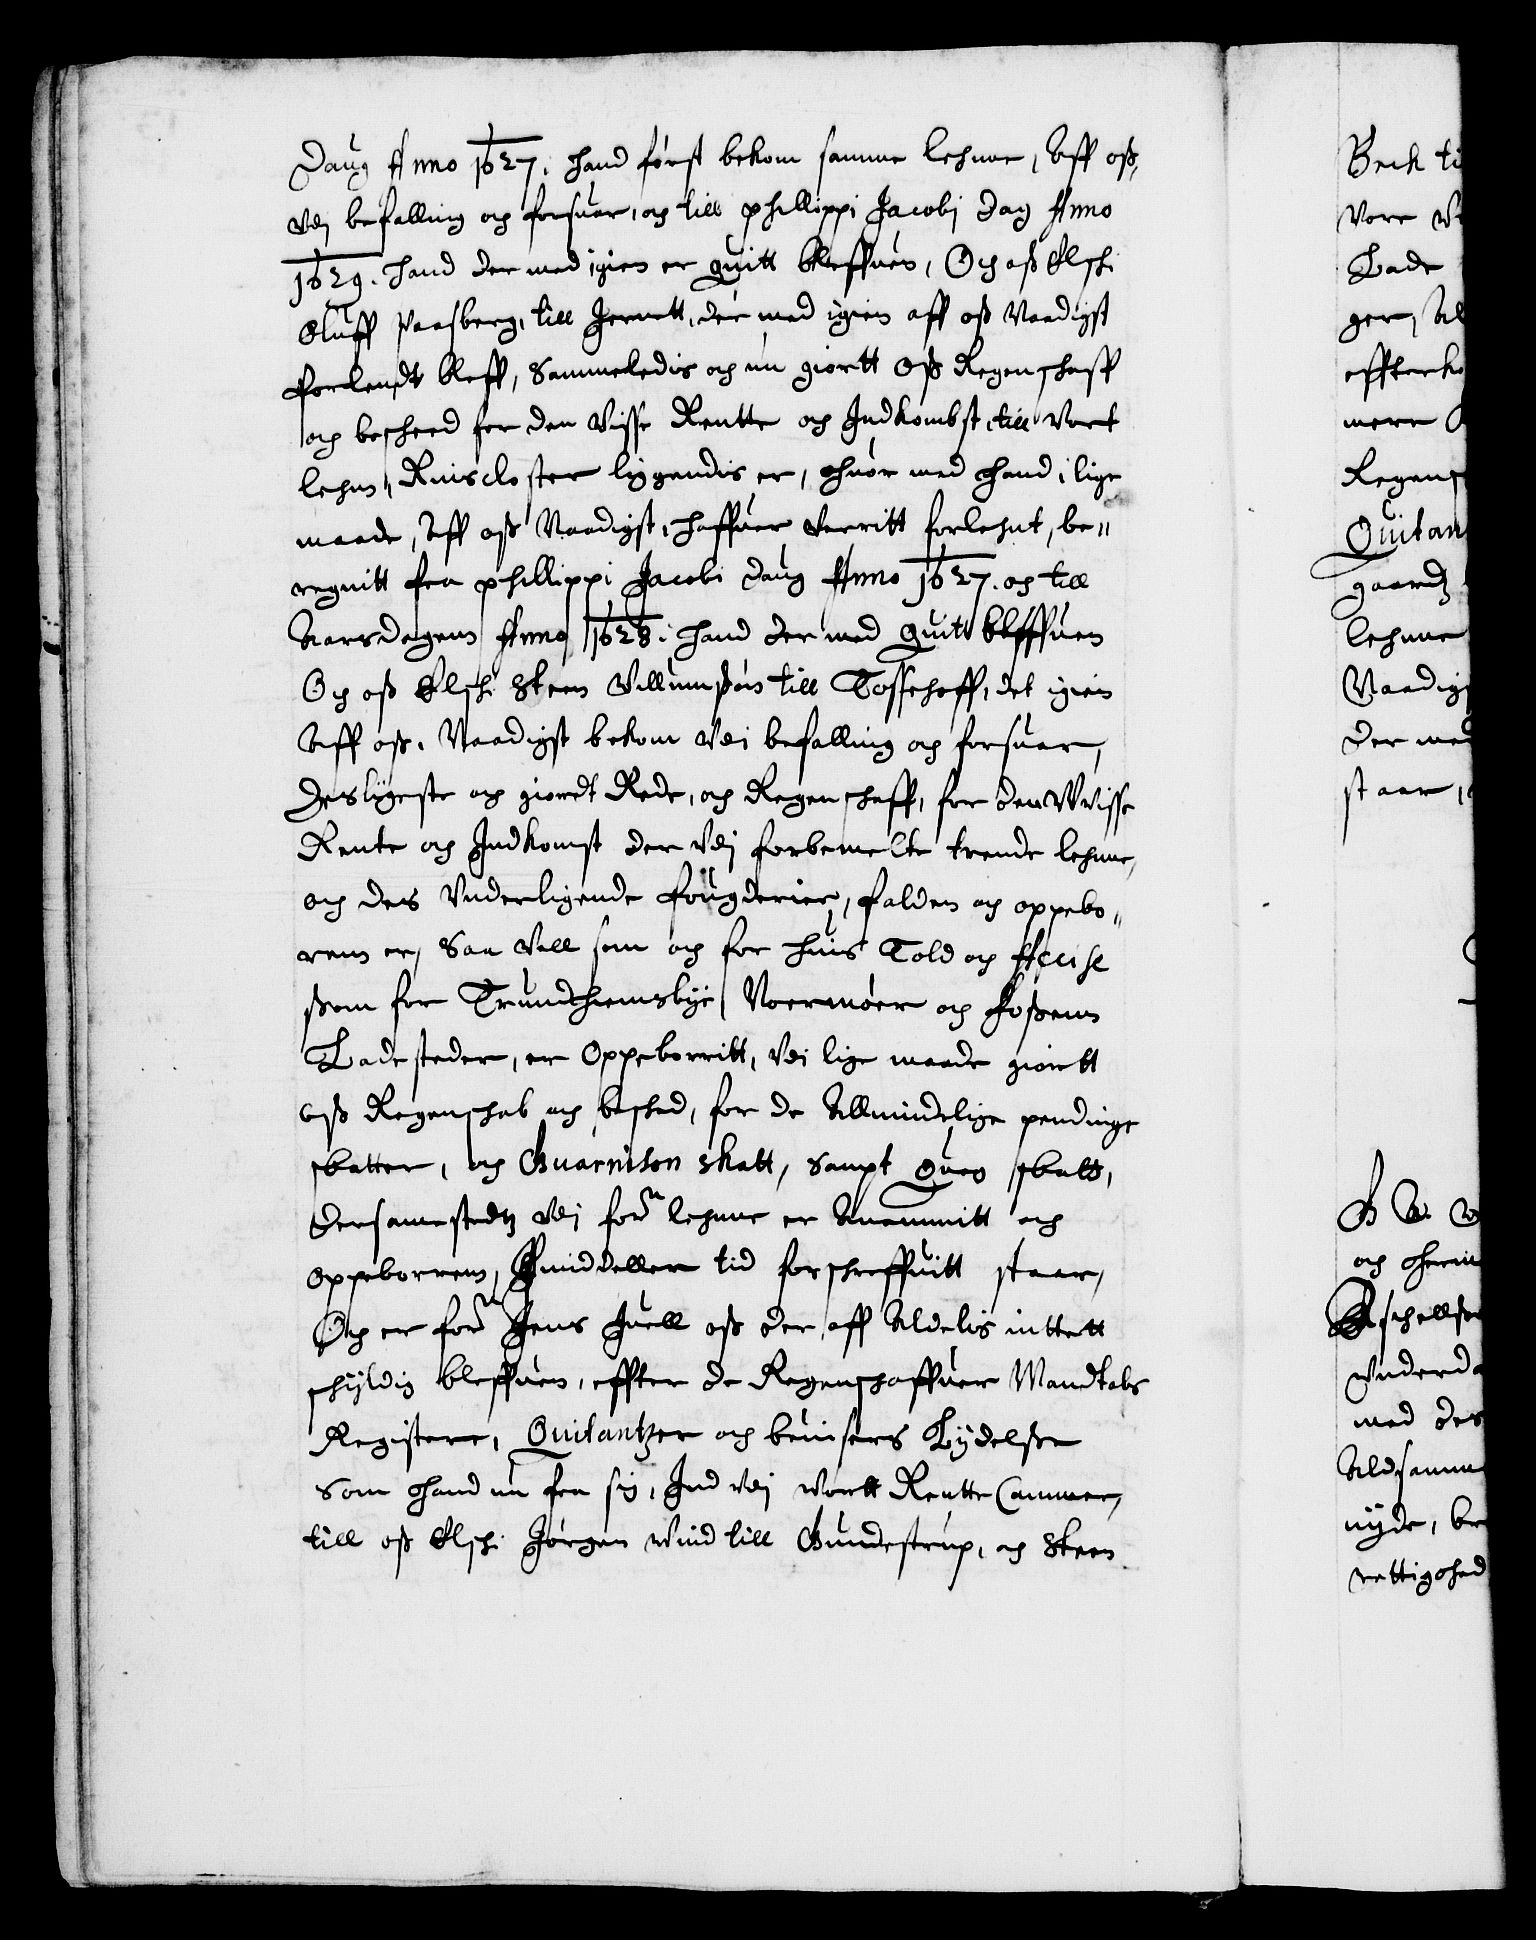 Daug Anno 1627. hand først bekom samme lehnne, Aff oß,
Vdj befalling och forsuar, och till phillippi Jacobj dag Anno
1629. hand der med igien er quitt bleffuen, Och oß Elsch:
Oluff Parsberg, till Jernitt, der med igien aff oß Naadigst
forlendt bleff, Sammeledis och nu giortt Oß Regenschaff
och bescheed for den Visse Rentte och Indkombst, till Vort
lehn, Reinscloster liggendis er, Huor med Hand i lige
maade, Aff oß Naadigst, haffuer Verritt forlehnt, be-
regnitt fra phillippi Jacobi daug Anno 1627. och till
Aarsdagen Anno 1628. hand der med quitt bleffuen
Och oß Elsch: Steen Villumßøn till Tosseboff, det igien
Aff oß. Naadigst bekom Vdi befalling och forsuar,
Desligeste och giordt Rede, och Regenschaff, for den Wisse
Rente och Indkomst der Vdj forbemelte trende lehnne,
och des Vnderligende fougderier, falden och oppebo-
ren er, Saa Vell som och for huis Told och Accise
ßom for Trundhiemsbye, Noermøer och Foßens
Ladesteder, er Oppeborritt, Vdi lige maade giortt
oß Regenschab och besked, for de Allmindelige pendinge
skatter, och Guarnison skatt, Sampt Queg skatt,
dersammestedtz Vdj forn lehnne er Anammitt och
Oppeborren, Emiddeller tid forschreffuitt staar,
Och er forn Jens Juell oß der aff Aldelis inttett
schyldig bleffuen, effter de Regenschaffuer Mandtals
Registere, Quitantzer och beuisers Lydelße
Som Hand nu fra sig, Ind Vdj Vortt Rentte Cammer,
till oß Elsch: Jørgen Vind till Gundestrup, och Steen
Beck ti
Vore
Lade
ger,
effterko
mere
Regens
Quitan
gaardz
lehnne
Naadigs
der med
staar,
och Herin
Eschellse
Vnderda
med des
Aldsamm
nyde, be
rettighed